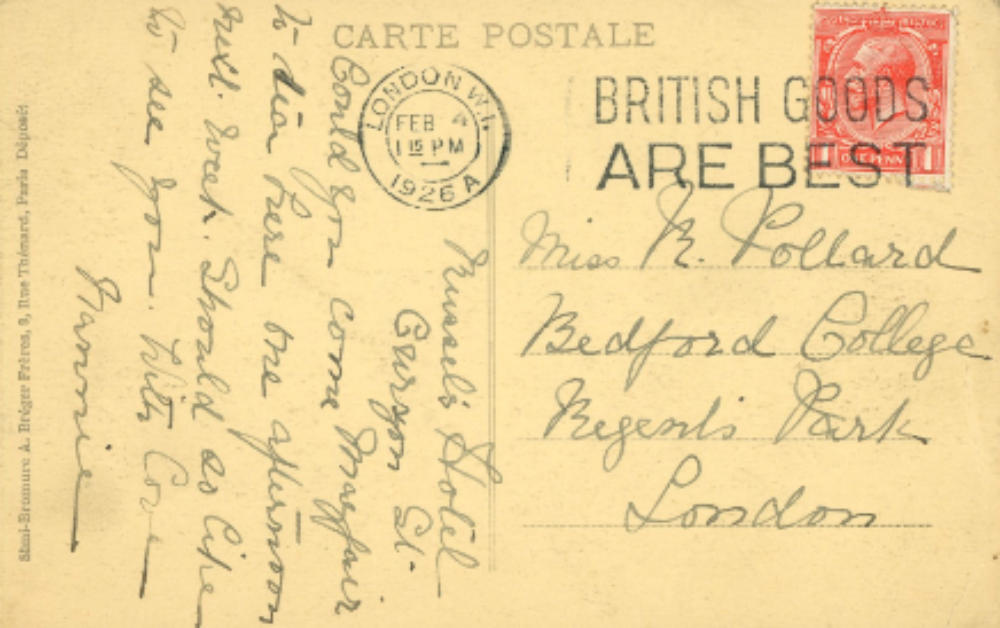 CARTE POSTALE
LONDON W.1.
FEB 4
1 15 PM
1926 A
BRITISH GOODS
ARE BEST
ONE PENNY
1
Miss N. Pollard
Bedford College
Regents Park
London
Hotel
Curzon St.
Mayfair
Could you come
to tea here one afternoon
next week. Should so like
to see you. With Love
Nannie
Simi-Bromure A. Bréger Frères, 9, Rue Thénard, Paris Déposé